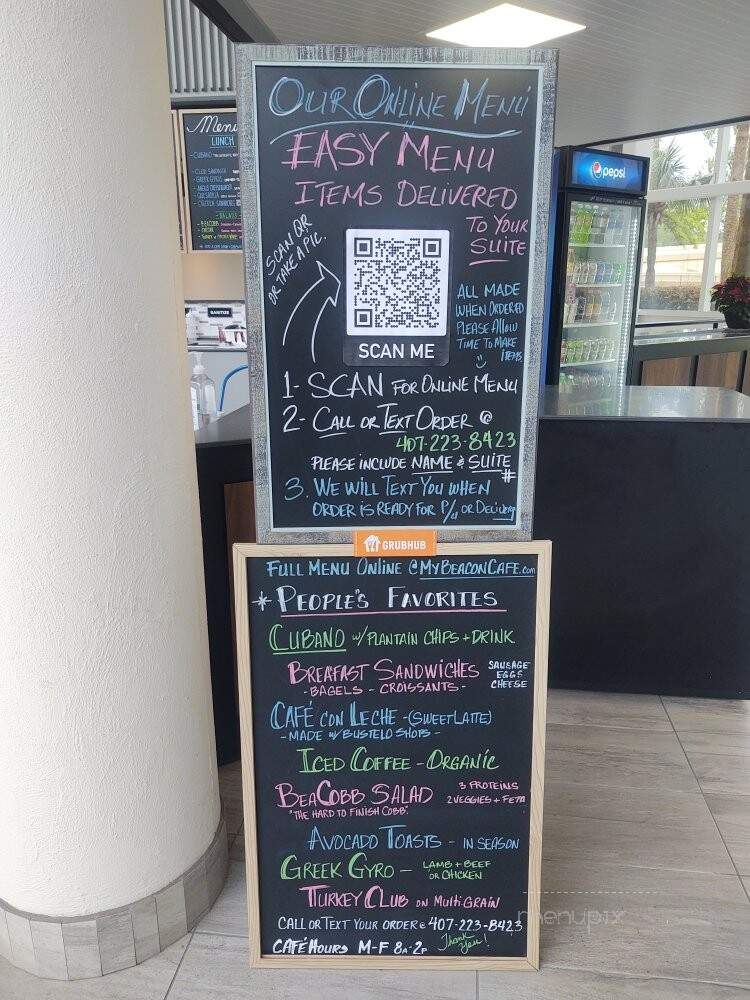 OUR ONLINE MENU
EASY MENU
ITEMS DELIVERED
TO YOUR
SUITE
SCAN QR
OR TAKE A PIC.
ALL MADE
WHEN ORDERED
PLEASE ALLOW
TIME TO MAKE
ITEMS
SCAN ME
1- SCAN FOR ONLINE MENU
2- CALL OR TEXT ORDER @
407-223-8423
PLEASE INCLUDE NAME & SUITE
#
3. WE WILL TEXT YOU WHEN
ORDER IS READY FOR P/U OR DELIVERY
GRUBHUB
FULL MENU ONLINE @MYBEACONCAFE.com
* PEOPLE'S FAVORITES
CUBANO W/ PLANTAIN CHIPS + DRINK
BREAFAST SANDWICHES
- BAGELS - CROISSANTS -
SAUSAGE
EGGS
CHEESE
CAFÉ CON LECHE - (SWEET LATTE)
- MADE W/ BUSTELO SHOTS -
ICED COFFEE - ORGANIC
BEACOBB SALAD
"THE HARD TO FINISH COBB"
3 PROTEINS
2 VEGGIES + FETA
AVOCADO TOASTS - IN SEASON
GREEK GYRO - LAMB + BEEF
OR CHICKEN
TURKEY CLUB ON MULTIGRAIN
CALL OR TEXT YOUR ORDER @ 407-223-8423
CAFÉ HOURS M-F 8A-2P Thank You!
Menu
LUNCH
CUBANO
CLUB SANDWICH
- SALADS -
BEACOBB
CAESAR
SANITIZE
pepsi
menupix